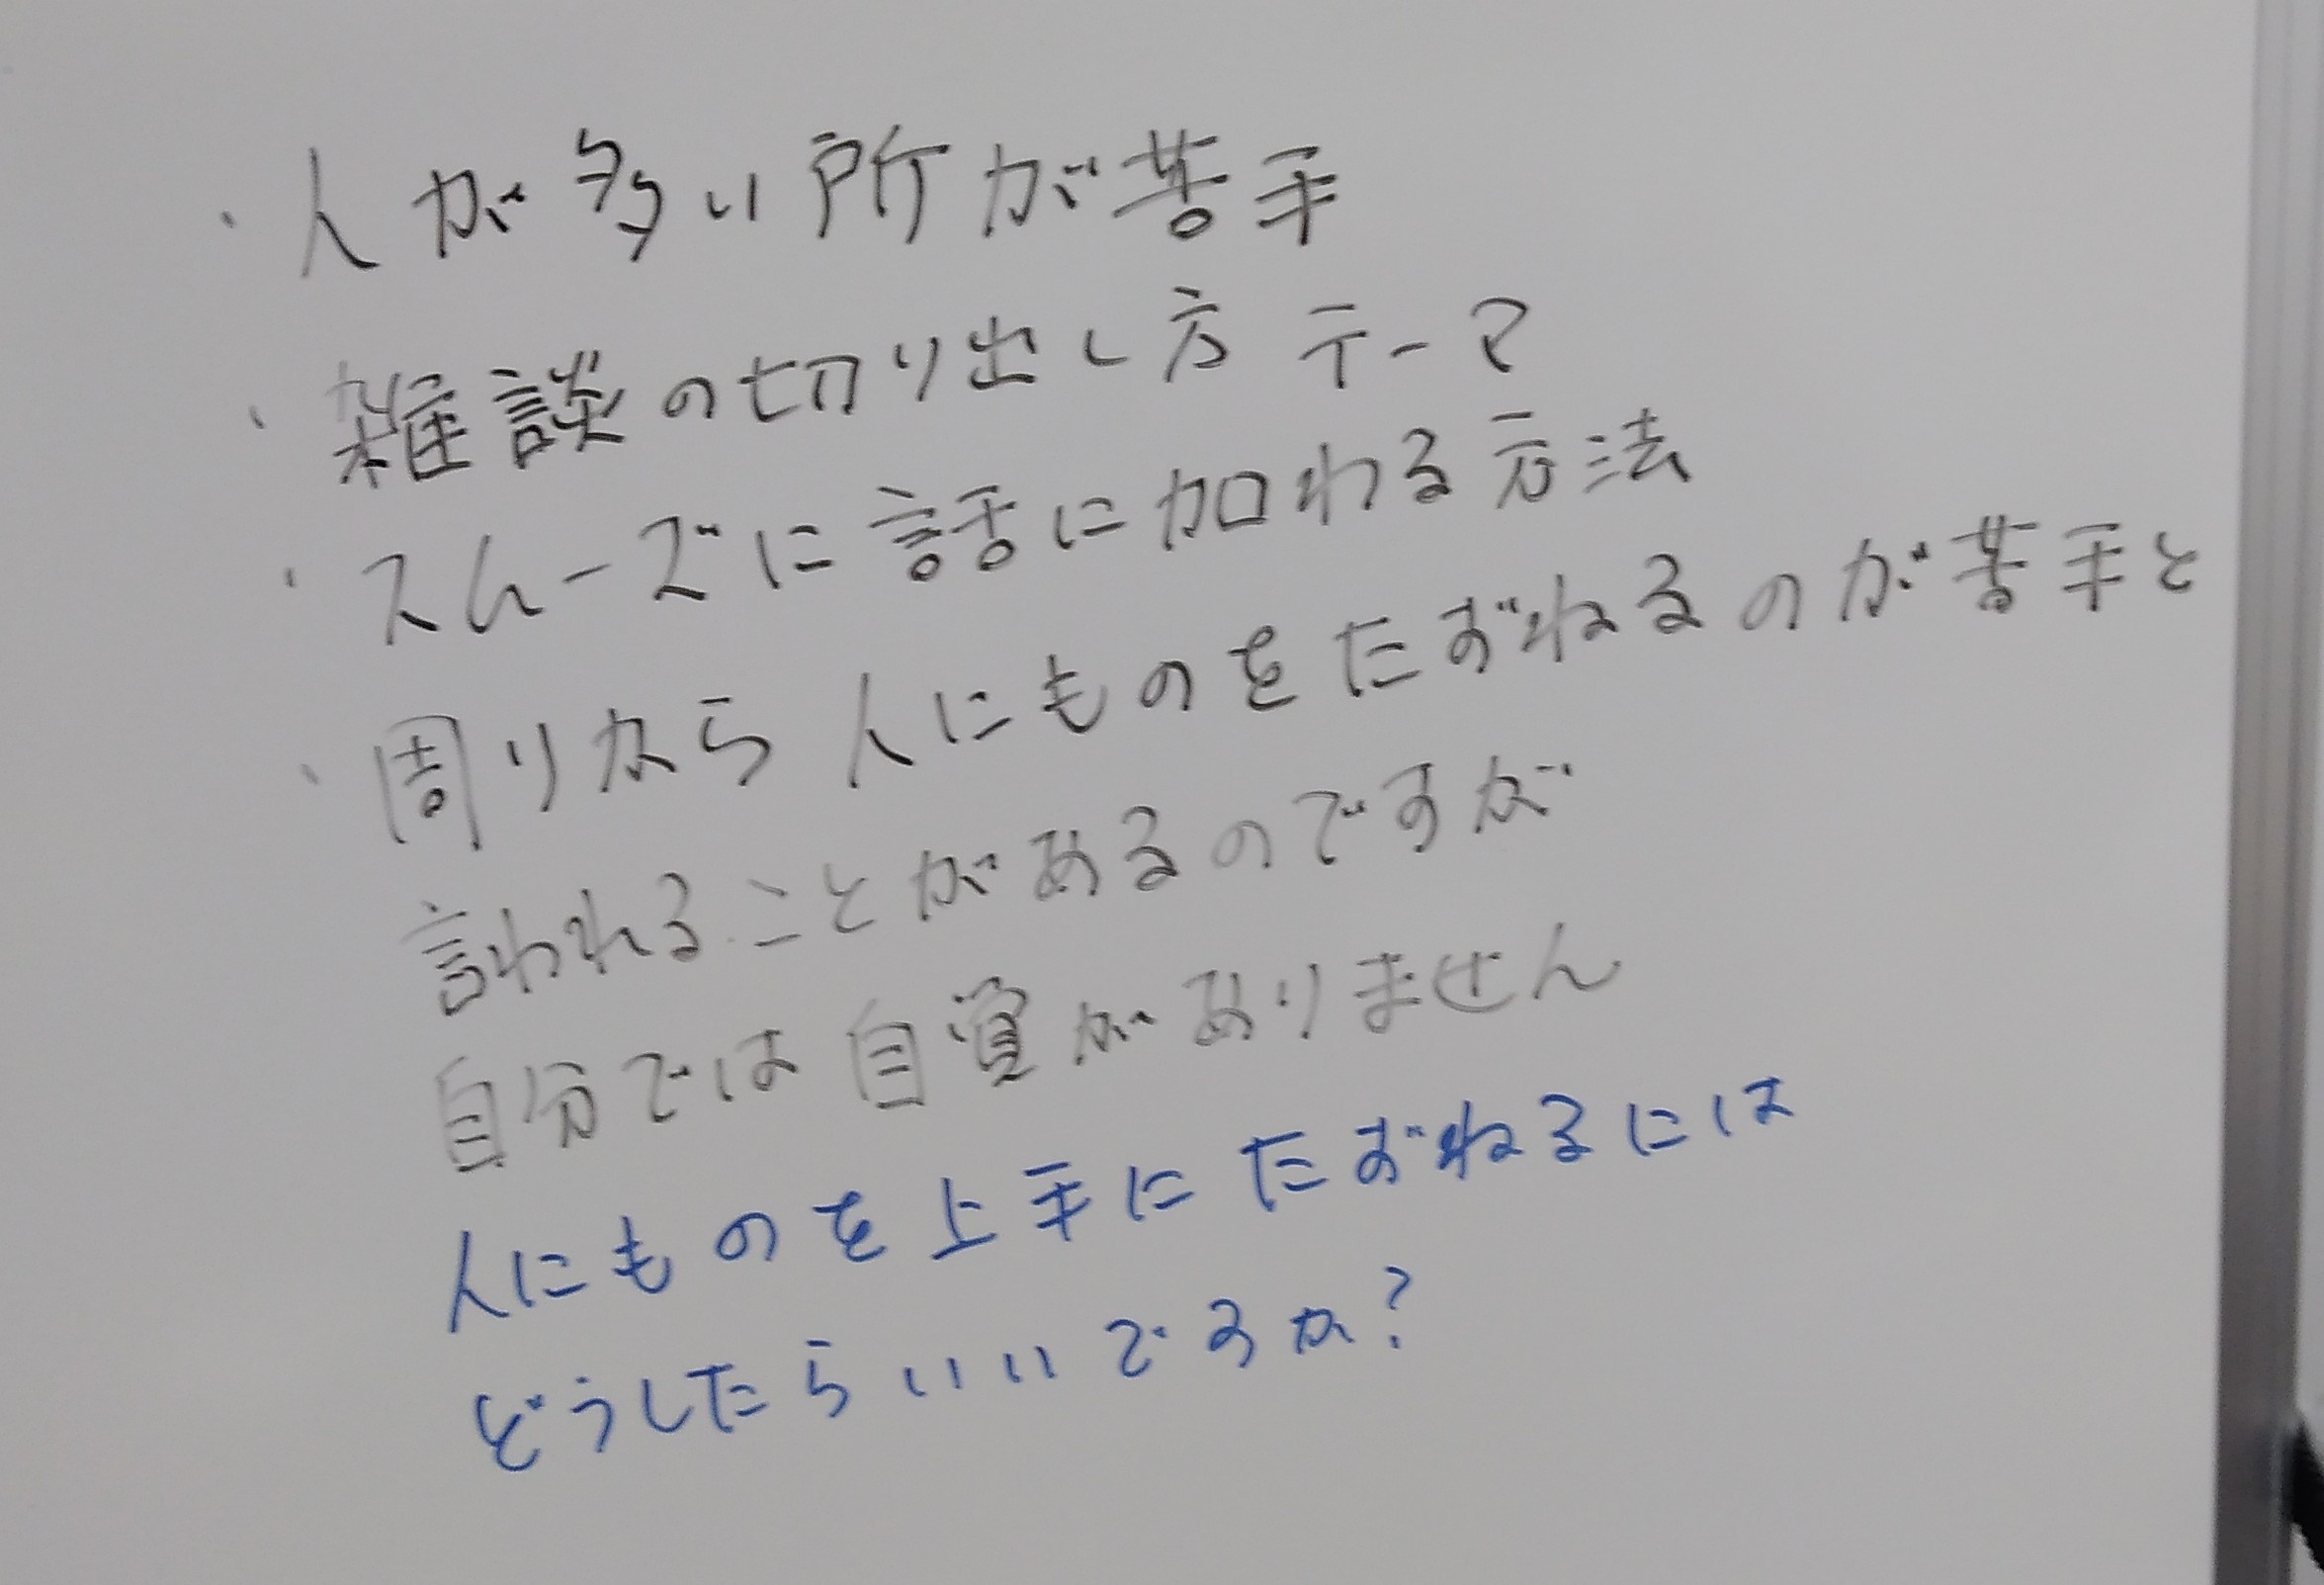 ・人が多い所が苦手
・雑談の切り出し方 テーマ
・スムーズに話に加わる方法
・周りから人にものをたずねるのが苦手と
言われることがあるのですが
自分では自覚がありません
人にものを上手にたずねるには
どうしたらいいですか?